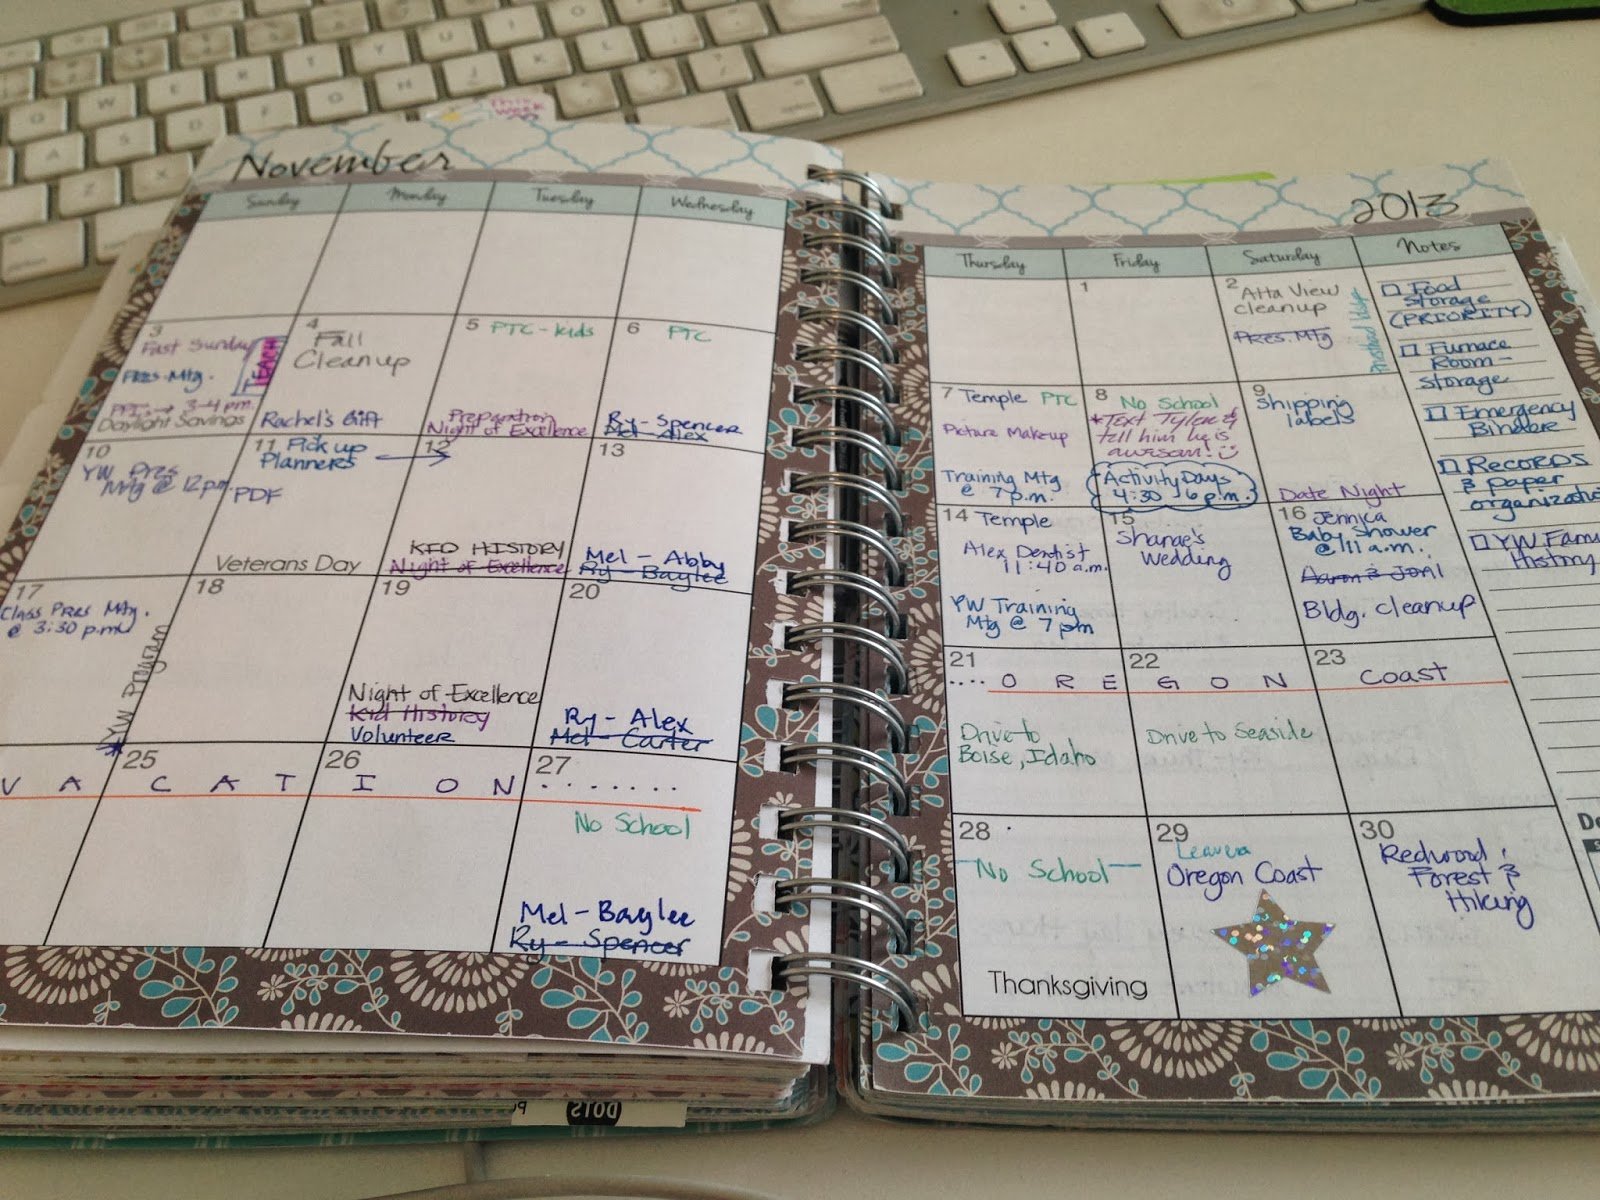 November
Sunday
Monday
Tuesday
Wednesday
3
Fast Sunday
TEACH
PRES. Mtg.
PPI. → 3-4 p.m.
Daylight Savings
4
Fall
Cleanup
Rachel's Gift
5
PTC - kids
Preparation
Night of Excellence
6
PTC
Ry - Spencer
Mel - Alex
10
YW Pres
Mtg @ 12 pm
11
Pick up
Planners
PDF
Veterans Day
12
KFD HISTORY
Night of Excellence
13
Mel - Abby
Ry - Baylee
17
Class PRES Mtg.
@ 3:30 p.m.
YW Program
18
19
Night of Excellence
Kid History
Volunteer
20
Ry - Alex
Mel - Carter
V A C A T I O N .......
25
26
27
No School
Mel - Baylee
Ry - Spencer
DOTS
2013
Thursday
Friday
Saturday
Notes
1
2
Alta View
cleanup
PRES. Mtg
7
Temple
PTC
Picture Makeup
Training Mtg
@ 7 p.m.
8
No School
*Text Tyler &
tell him he is
awesom!
Activity Days
4:30 6 p.m.
9
Shipping
labels
Date Night
14
Temple
Alex Dentist
11:40 a.m.
YW Training
Mtg @ 7 pm
15
Shanae's
Wedding
16
Jennica
Baby Shower
@ 11 a.m.
Aaron & JONI
Bldg. Cleanup
21
22
23
.... O R E G O N Coast
Drive to
Boise, Idaho
Drive to Seaside
28
No School
Thanksgiving
29
Oregon Coast
30
Redwood
Forest &
Hiking
Food
Storage
(PRIORITY)
Furnace
Room -
Storage
Emergency
Binder
RECORDS
& paper
YW Fam
History